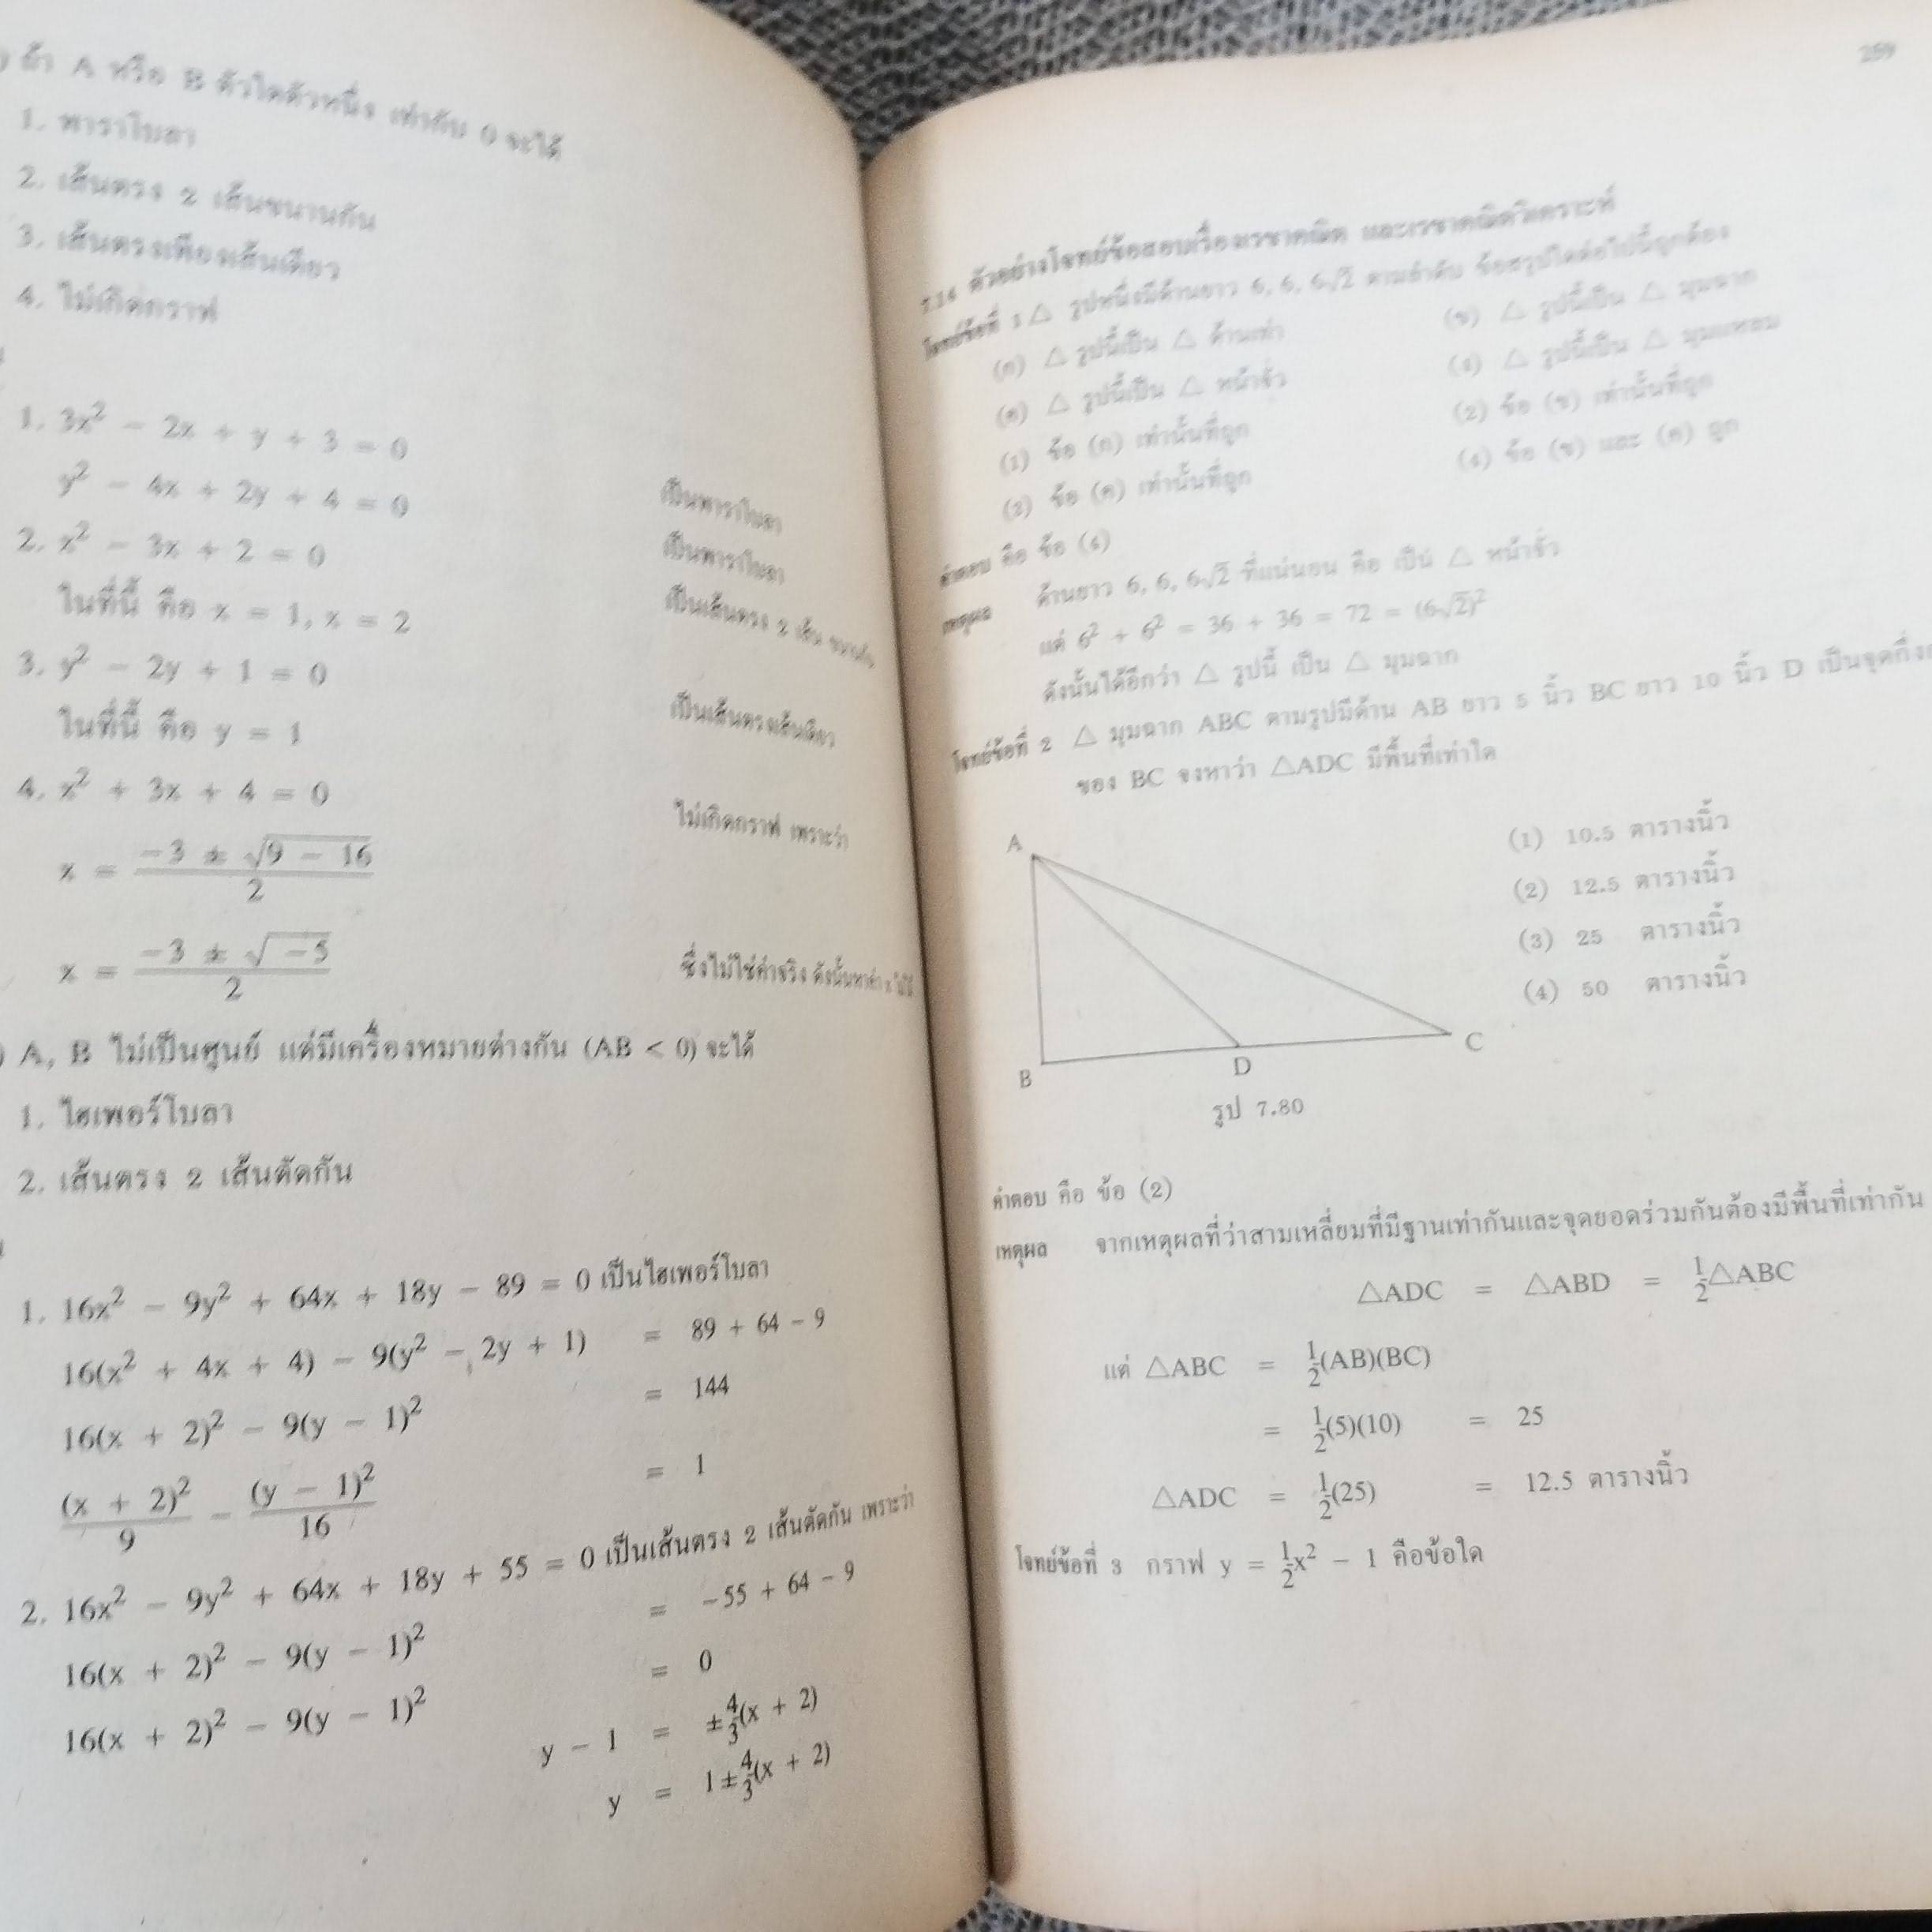 ถ้า A หรือ B ตัวใดตัวหนึ่ง เท่ากับ 0 จะได้
1. พาราโบลา
2. เส้นตรง 2 เส้นขนานกัน
3. เส้นตรงเพียงเส้นเดียว
4. ไม่เกิดกราฟ
1. 3x² − 2x + y + 3 = 0 เป็นพาราโบลา
y² − 4x + 2y + 4 = 0 เป็นพาราโบลา
2. x² − 3x + 2 = 0 เป็นเส้นตรง 2 เส้น ขนานกัน
ในที่นี้ คือ x = 1, x = 2
3. y² − 2y + 1 = 0 เป็นเส้นตรงเส้นเดียว
ในที่นี้ คือ y = 1
4. x² + 3x + 4 = 0 ไม่เกิดกราฟ เพราะว่า
x = (−3 ± √(9 − 16))/2
x = (−3 ± √(−5))/2 ซึ่งไม่ใช่ค่าจริง ดังนั้นหาค่า x ไม่ได้
) A, B ไม่เป็นศูนย์ แต่มีเครื่องหมายต่างกัน (AB < 0) จะได้
1. ไฮเพอร์โบลา
2. เส้นตรง 2 เส้นตัดกัน
1. 16x² − 9y² + 64x + 18y − 89 = 0 เป็นไฮเพอร์โบลา
16(x² + 4x + 4) − 9(y² − 2y + 1) = 89 + 64 − 9
16(x + 2)² − 9(y − 1)² = 144
(x + 2)²/9 − (y − 1)²/16 = 1
2. 16x² − 9y² + 64x + 18y + 55 = 0 เป็นเส้นตรง 2 เส้นตัดกัน เพราะว่า
16(x + 2)² − 9(y − 1)² = −55 + 64 − 9
16(x + 2)² − 9(y − 1)² = 0
y − 1 = ±4/3(x + 2)
y = 1 ± 4/3(x + 2)
259
7.14 ตัวอย่างโจทย์ข้อสอบเรื่องเรขาคณิต และเรขาคณิตวิเคราะห์
โจทย์ข้อที่ 1 △ รูปหนึ่งมีด้านยาว 6, 6, 6√2 ตามลำดับ ข้อสรุปใดต่อไปนี้ถูกต้อง
(ก) △ รูปนี้เป็น △ ด้านเท่า (ข) △ รูปนี้เป็น △ มุมฉาก
(ค) △ รูปนี้เป็น △ หน้าจั่ว (ง) △ รูปนี้เป็น △ มุมแหลม
(1) ข้อ (ก) เท่านั้นที่ถูก (2) ข้อ (ข) เท่านั้นที่ถูก
(3) ข้อ (ค) เท่านั้นที่ถูก (4) ข้อ (ข) และ (ค) ถูก
คำตอบ คือ ข้อ (4)
เหตุผล ด้านยาว 6, 6, 6√2 ที่แน่นอน คือ เป็น △ หน้าจั่ว
แต่ 6² + 6² = 36 + 36 = 72 = (6√2)²
ดังนั้นได้อีกว่า △ รูปนี้ เป็น △ มุมฉาก
โจทย์ข้อที่ 2 △ มุมฉาก ABC ตามรูปมีด้าน AB ยาว 5 นิ้ว BC ยาว 10 นิ้ว D เป็น
ของ BC จงหาว่า △ADC มีพื้นที่เท่าใด
A
B
D
C
(1) 10.5 ตารางนิ้ว
(2) 12.5 ตารางนิ้ว
(3) 25 ตารางนิ้ว
(4) 50 ตารางนิ้ว
รูป 7.80
คำตอบ คือ ข้อ (2)
เหตุผล จากเหตุผลที่ว่าสามเหลี่ยมที่มีฐานเท่ากันและจุดยอดร่วมกันต้องมีพื้นที่เท่ากัน
△ADC = △ABD = ½△ABC
แต่ △ABC = ½(AB)(BC)
= ½(5)(10) = 25
△ADC = ½(25) = 12.5 ตารางนิ้ว
โจทย์ข้อที่ 3 กราฟ y = ½x² − 1 คือข้อใด